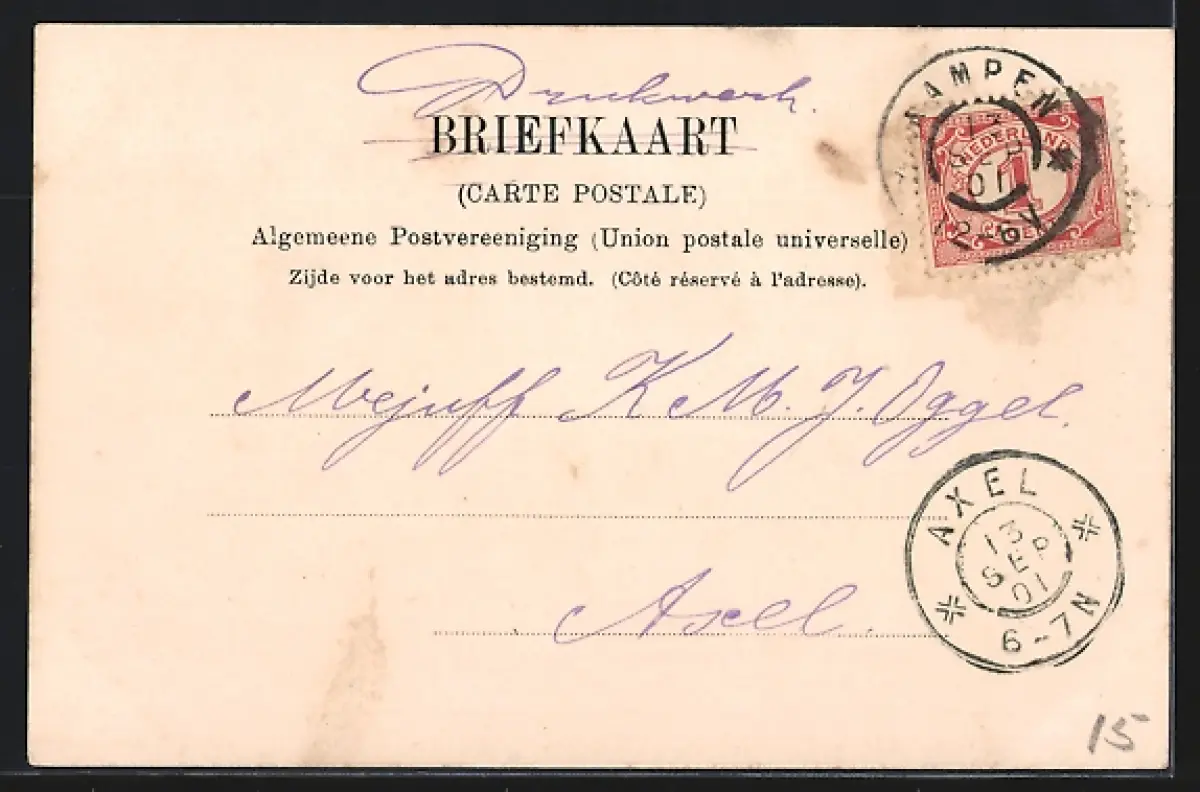 Drukwerk.
BRIEFKAART
(CARTE POSTALE)
Algemeene Postvereeniging (Union postale universelle)
Zijde voor het adres bestemd. (Côté réservé à l'adresse).
KAMPEN
01
NEDERLAND
1
CENT
Mejuff K M. J. Oggel.
AXEL
13
SEP
01
6-7N
Axel.
15